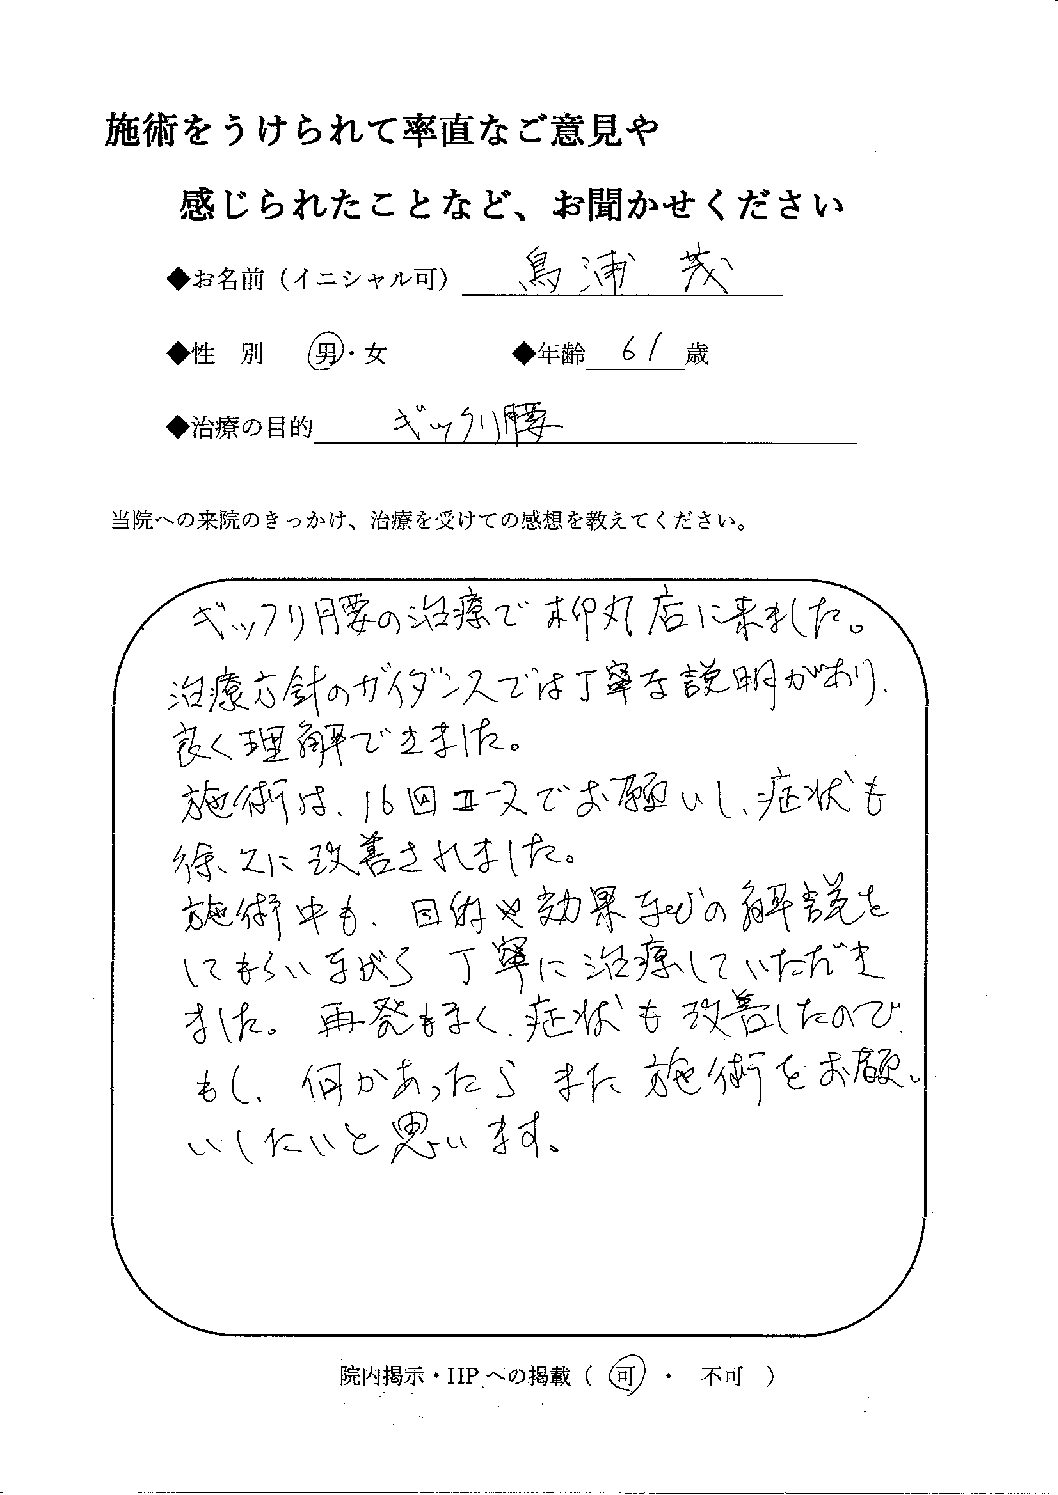 施術をうけられて率直なご意見や
感じられたことなど、お聞かせください
◆お名前（イニシャル可） 鳥浦 茂
◆性 別 男・女 ◆年齢 61 歳
◆治療の目的 ギックリ腰
当院への来院のきっかけ、治療を受けての感想を教えてください。
ギックリ腰の治療で 柳丸店に来ました。
治療方針のガイダンスでは丁寧な説明があり、
良く理解できました。
施術は、16回コースでお願いし、症状も
徐々に改善されました。
施術中も、目的や効果などの解説を
してもらいながら 丁寧に治療していただき
ました。再発もなく、症状も改善したので、
もし、何かあったら また 施術をお願
いしたいと思います。
院内掲示・HPへの掲載（ 可 ・ 不可 ）